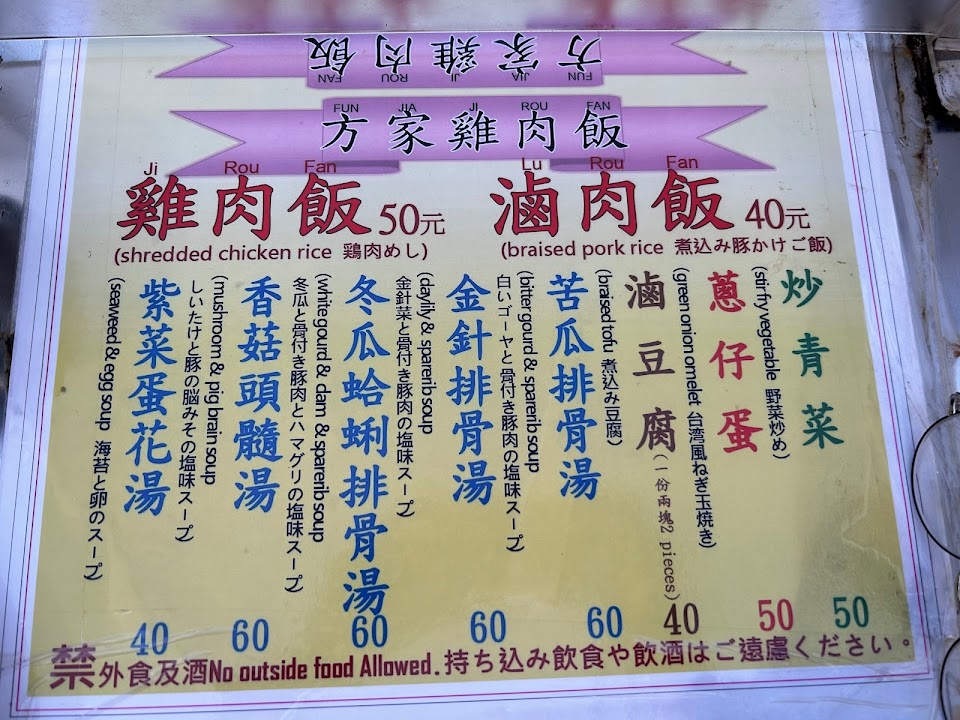 方家雞肉飯
FUN JIA JI ROU FAN
FUN JIA JI ROU FAN
方家雞肉飯
Ji Rou Fan
雞肉飯 50元
(shredded chicken rice 鶏肉めし)
Lu Rou Fan
滷肉飯 40元
(braised pork rice 煮込み豚かけご飯)
炒青菜
(stir fry vegetable 野菜炒め)
50
蔥仔蛋
(green onion omelet 台湾風ねぎ玉焼き)
50
滷豆腐(一份兩塊2 pieces)
(braised tofu 煮込み豆腐)
40
苦瓜排骨湯
(bitter gourd & sparerib soup
白いゴーヤと骨付き豚肉の塩味スープ)
60
金針排骨湯
(daylily & sparerib soup
金針菜と骨付き豚肉の塩味スープ)
60
冬瓜蛤蜊排骨湯
(white gourd & dam & sparerib soup
冬瓜と骨付き豚肉とハマグリの塩味スープ)
60
香菇頭髓湯
(mushroom & pig brain soup
しいたけと豚の脳みその塩味スープ)
60
紫菜蛋花湯
(seaweed & egg soup 海苔と卵のスープ)
40
禁外食及酒No outside food Allowed.持ち込み飲食や飲酒はご遠慮ください。